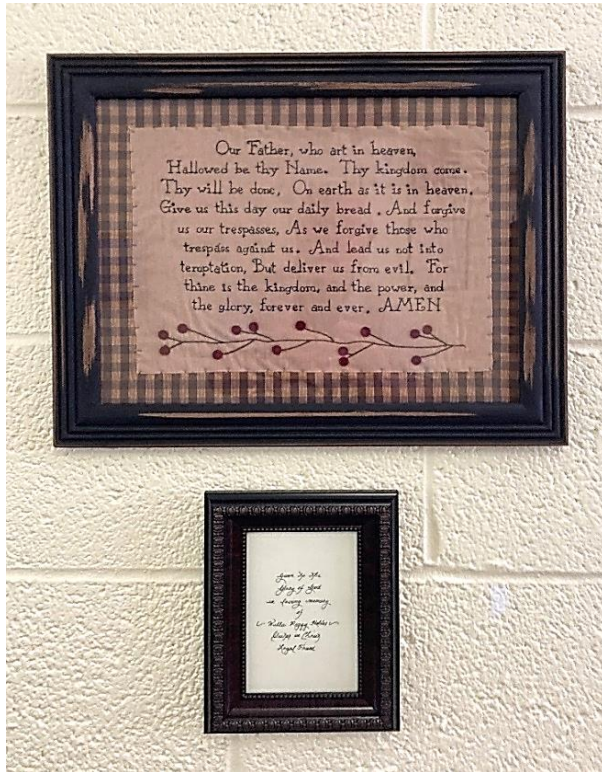 Our Father, who art in heaven,
Hallowed be thy Name. Thy kingdom come.
Thy will be done, On earth as it is in heaven.
Give us this day our daily bread. And forgive
us our trespasses, As we forgive those who
trespass against us. And lead us not into
temptation, But deliver us from evil. For
thine is the kingdom, and the power, and
the glory, forever and ever. AMEN
Given To The
Glory of God
in loving memory
of
Loyal Friend